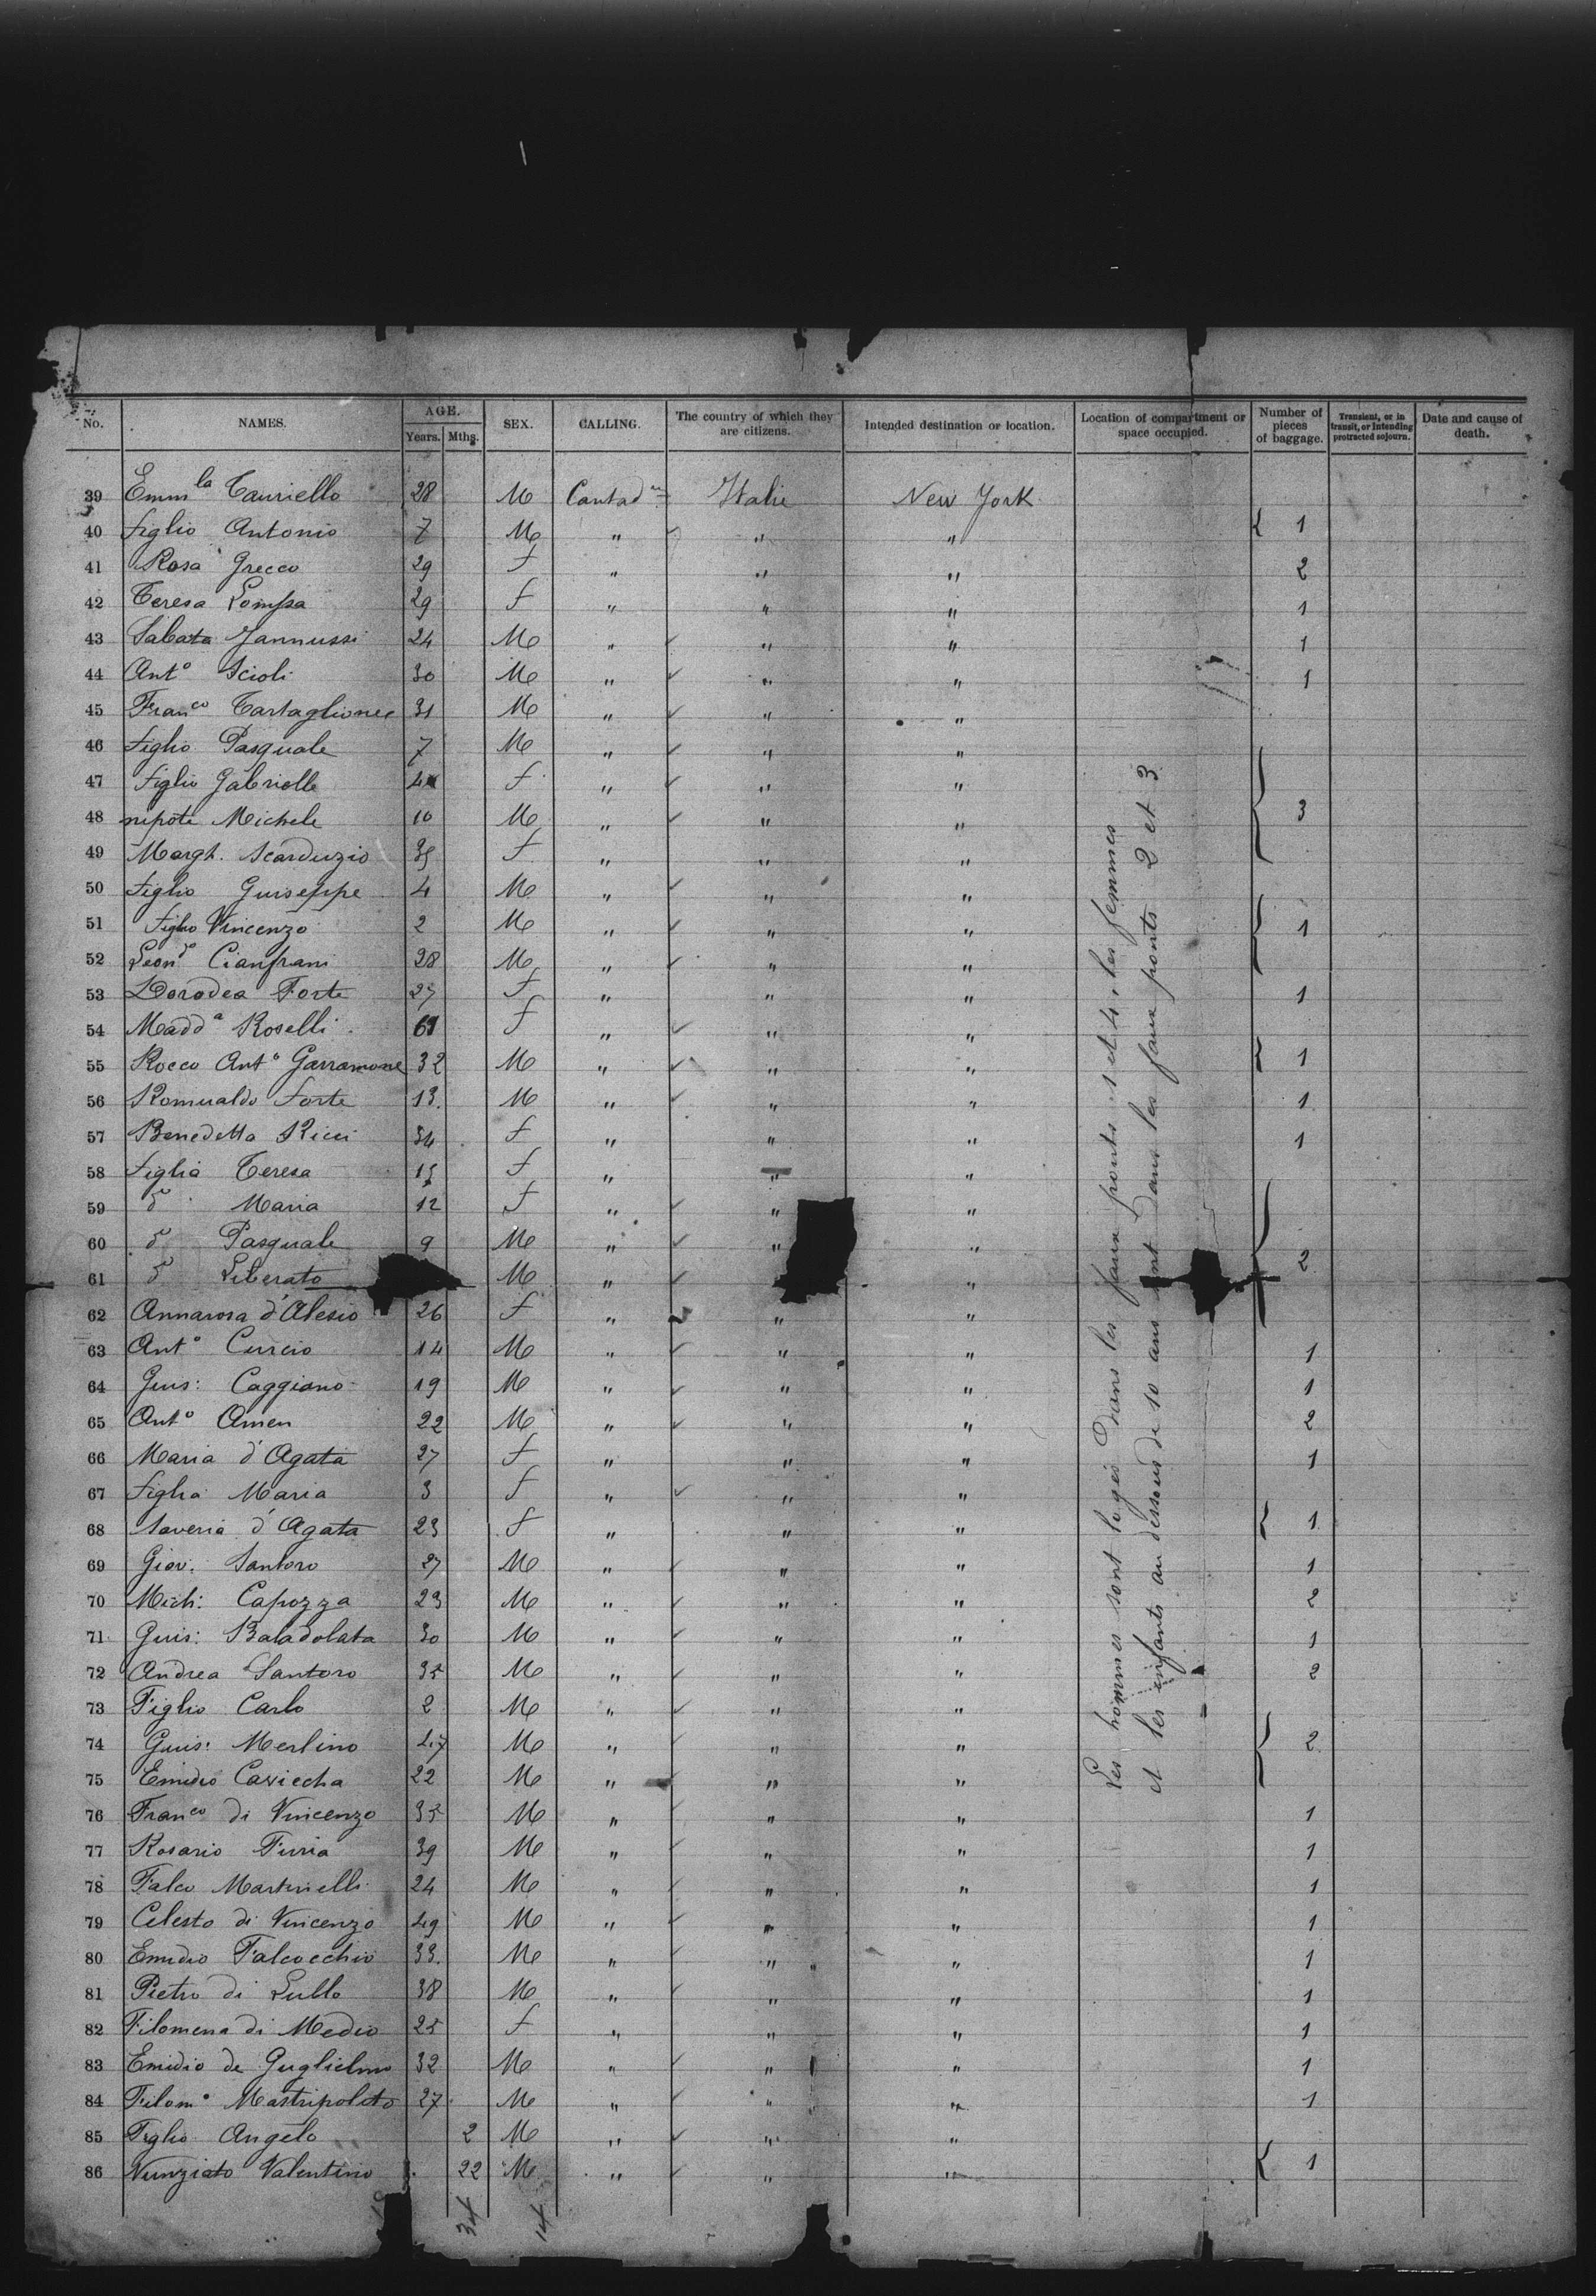 No. NAMES. AGE. Years. Mths. SEX. CALLING. The country of which they are citizens. Intended destination or location. Location of compartment or space occupied. Number of pieces of baggage. Transient, or in transit, or intending protracted sojourn. Date and cause of death.
39 Emm la Tauriello 28 M Contad Italie New York
40 figlio Antonio 7 M " " " 1
41 Rosa Grecco 29 f " " " 2
42 Teresa 29 f " " " 1
43 Sabata Jannussi 24 M " " " 1
44 Ant° Scioli 30 M " " " 1
45 Fran co Tartaglionee 31 M " " "
46 figlio Pasquale 7 M " " "
47 figlio Gabrielle 4 f " " "
48 nipote Michele 10 M " " " 3
49 Margh. Scarduzio 35 f " " "
50 figlio Guiseppe 4 M " " "
51 figlio Vincenzo 2 M " " " 1
52 Leon do Cianfrani 28 M " " "
53 Dorodea Forte 27 f " " " 1
54 Madd a Roselli 61 f " " "
55 Rocco Ant° Garramone 32 M " " " 1
56 Romualdo Forte 13. M " " " 1
57 Benedetta Ricci 34 f " " " 1
58 figlia Teresa 15 f " " "
59 d° Maria 12 f " " "
60 d° Pasquale 9 M " " "
61 d° Liberato M " " 2
62 Annarosa d'Alesio 26 f " " "
63 Ant° Curcio 14 M " " " 1
64 Gius: Caggiano 19 M " " " 1
65 Ant° Amen 22 M " " " 2
66 Maria d'Agata 27 f " " " 1
67 figlia Maria 3 f " " "
68 Saveria d'Agata 23 f " " " 1
69 Giov. Santoro 27 M " " " 1
70 Mich: Capozza 23 M " " " 2
71 Guis: Baladolata 30 M " " " 1
72 Andrea Santoro 35 M " " " 2
73 Figlio Carlo 2 M " " "
74 Guis: Merlino 47 M " " " 2
75 Emidio Caviecha 22 M " " "
76 Fran co di Vincenzo 35 M " " " 1
77 Rosario Furia 39 M " " " 1
78 Falco Martinelli 24 M " " " 1
79 Celesto di Vincenzo 49 M " " " 1
80 Emidio Falcocchio 33. M " " " 1
81 Pietro di Lullo 38 M " " " 1
82 Filomena di Medio 25 f " " " 1
83 Emidio de Guglielmo 32 M " " " 1
84 Filom° Mastripolito 27 M " " " 1
85 Figlio Angelo 2 M " " "
86 Nunziato Valentino 22 M " " " 1
34 14
Les hommes sont logés dans les faux ponts 1 et 4, les femmes
et les enfants au dessous de 10 ans sont dans les faux ponts 2 et 3